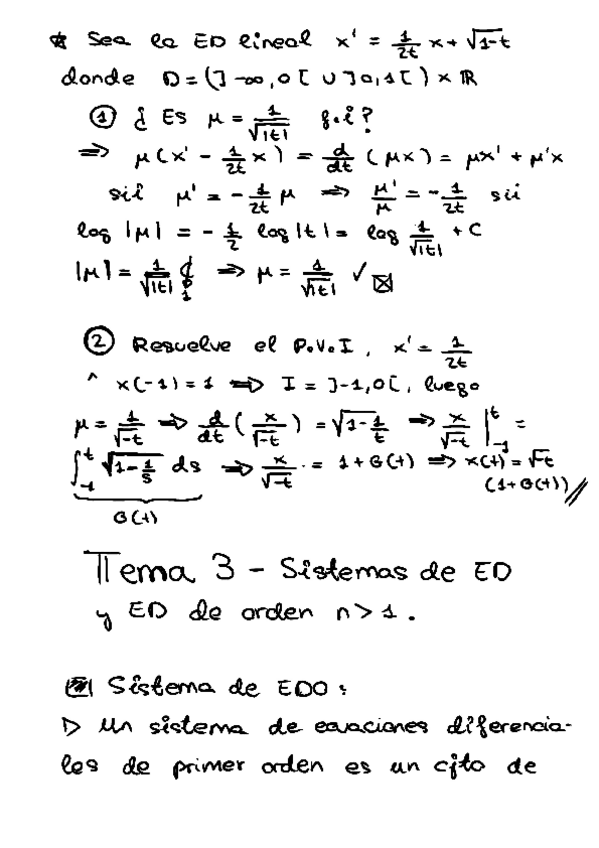 ☆ Sea la ED lineal x' = 1/2t x + √1-t
donde D = (]-∞,0[ ∪ ]0,1[) × ℝ
① ¿ Es μ = 1/√|t| f.i?
⇒ μ(x' - 1/2t x) = d/dt (μx) = μx' + μ'x
sii μ' = -1/2t μ ⇒ μ'/μ = -1/2t sii
log |μ| = -1/2 log |t| = log 1/√|t| + C
|μ| = 1/√|t| ⇒ μ = 1/√|t| ✓ ☒
② Resuelve el P.V.I, x' = 1/2t
^ x(-1) = 1 ⇒ I = ]-1,0[, luego
μ = 1/√-t ⇒ d/dt (x/√-t) = √1-1/t ⇒ x/√-t |_{-1}^{t} =
∫_{-1}^{t} √1-1/s ds ⇒ x/√-t = 1 + G(t) ⇒ x(t) = √-t
(1+G(t))//
G(t)
Tema 3 - Sistemas de ED
y ED de orden n > 1.
Sistema de EDO:
▷ Un sistema de ecuaciones diferencia-
les de primer orden es un cjto de